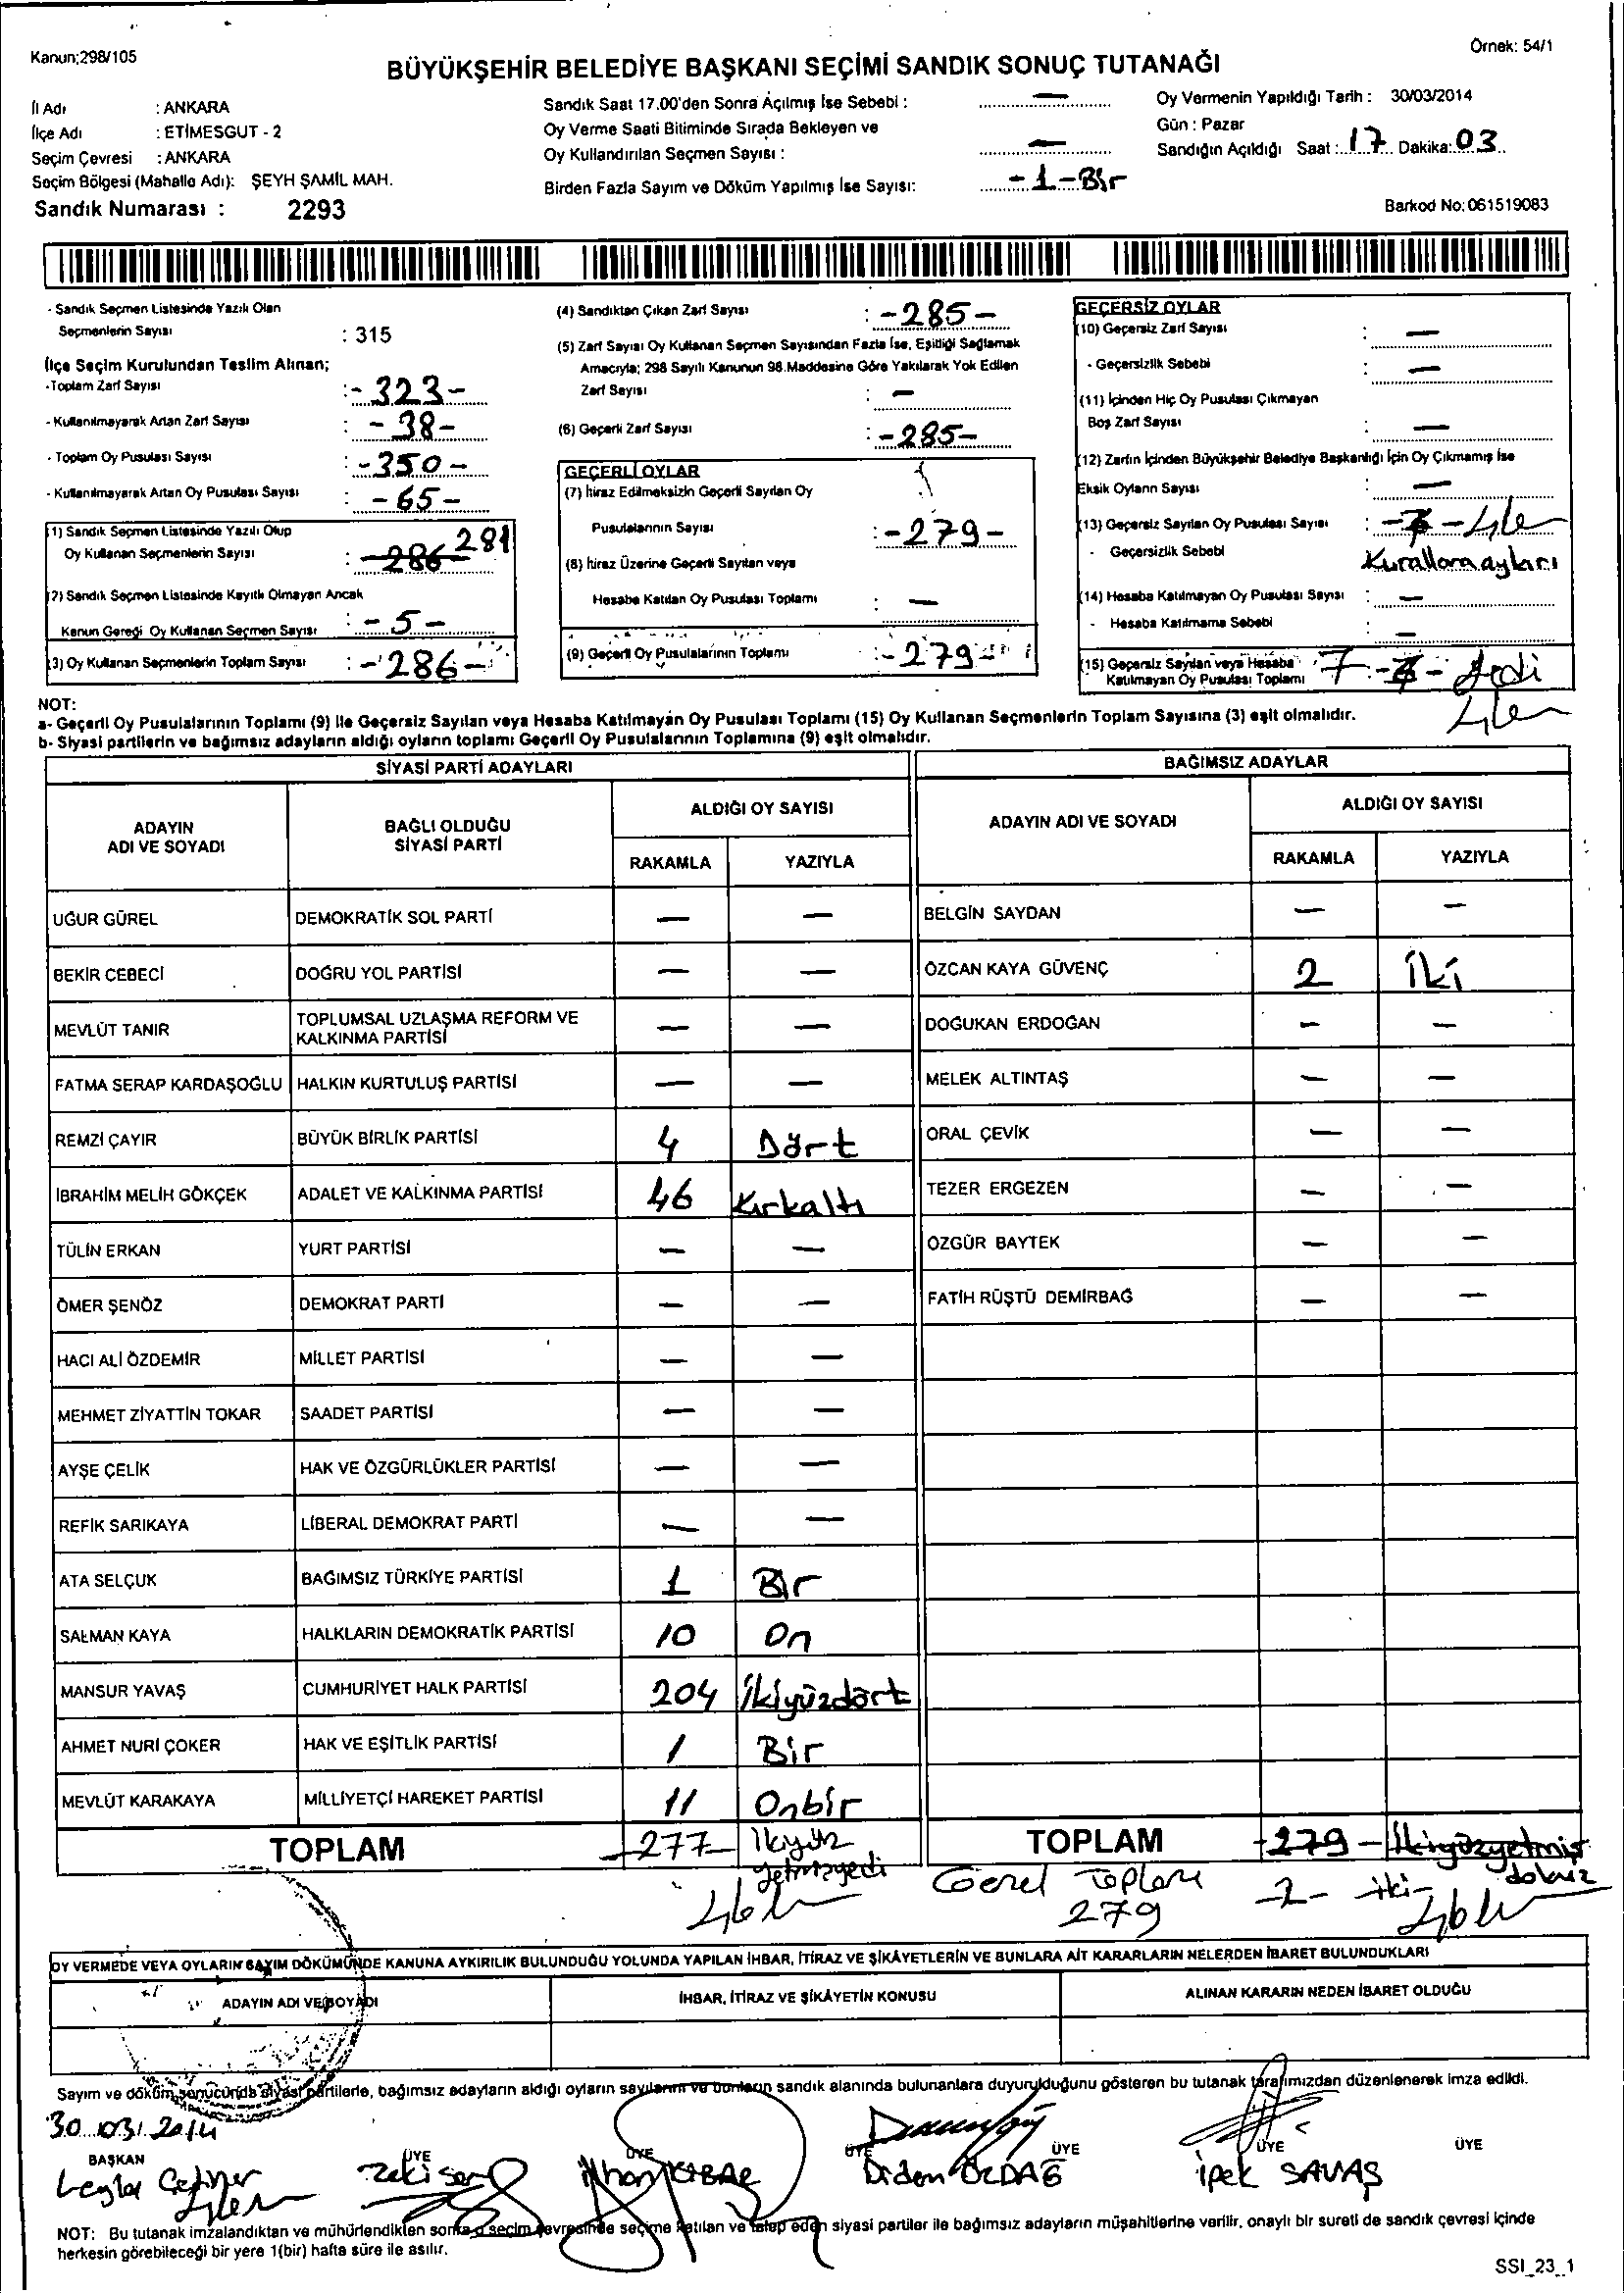 Kanun;298/105
Örnek: 54/1
BÜYÜKŞEHİR BELEDİYE BAŞKANI SEÇİMİ SANDIK SONUÇ TUTANAĞI
İl Adı : ANKARA
İlçe Adı : ETİMESGUT - 2
Seçim Çevresi : ANKARA
Seçim Bölgesi (Mahalle Adı): ŞEYH ŞAMİL MAH.
Sandık Numarası : 2293
Sandık Saat 17.00'den Sonra Açılmış İse Sebebi : —
Oy Verme Saati Bitiminde Sırada Bekleyen ve
Oy Kullandırılan Seçmen Sayısı : —
Birden Fazla Sayım ve Döküm Yapılmış İse Sayısı: - 1 - Bir
Oy Vermenin Yapıldığı Tarih : 30/03/2014
Gün : Pazar
Sandığın Açıldığı Saat : 17 Dakika: 03
Barkod No: 061519083
- Sandık Seçmen Listesinde Yazılı Olan
Seçmenlerin Sayısı : 315
İlçe Seçim Kurulundan Teslim Alınan;
-Toplam Zarf Sayısı : - 323 -
- Kullanılmayarak Artan Zarf Sayısı : - 38 -
- Toplam Oy Pusulası Sayısı : - 350 -
- Kullanılmayarak Artan Oy Pusulası Sayısı : - 65 -
(1) Sandık Seçmen Listesinde Yazılı Olup
Oy Kullanan Seçmenlerin Sayısı : - 286 281
(2) Sandık Seçmen Listesinde Kayıtlı Olmayan Ancak
Kanun Gereği Oy Kullanan Seçmen Sayısı : - 5 -
(3) Oy Kullanan Seçmenlerin Toplam Sayısı : - 286 -
(4) Sandıktan Çıkan Zarf Sayısı : - 285 -
(5) Zarf Sayısı Oy Kullanan Seçmen Sayısından Fazla İse, Eşitliği Sağlamak
Amacıyla; 298 Sayılı Kanunun 98.Maddesine Göre Yakılarak Yok Edilen
Zarf Sayısı : —
(6) Geçerli Zarf Sayısı : - 285 -
GEÇERLİ OYLAR
(7) İtiraz Edilmeksizin Geçerli Sayılan Oy
Pusulalarının Sayısı : - 279 -
(8) İtiraz Üzerine Geçerli Sayılan veya
Hesaba Katılan Oy Pusulası Toplamı : —
(9) Geçerli Oy Pusulalarının Toplamı : - 279 -
GEÇERSİZ OYLAR
(10) Geçersiz Zarf Sayısı : —
- Geçersizlik Sebebi : —
(11) İçinden Hiç Oy Pusulası Çıkmayan
Boş Zarf Sayısı : —
(12) Zarfın İçinden Büyükşehir Belediye Başkanlığı İçin Oy Çıkmamış İse
Eksik Oyların Sayısı : —
(13) Geçersiz Sayılan Oy Pusulası Sayısı :
- Geçersizlik Sebebi Kurallara aykırı
(14) Hesaba Katılmayan Oy Pusulası Sayısı : —
- Hesaba Katılmama Sebebi : —
(15) Geçersiz Sayılan veya Hesaba
Katılmayan Oy Pusulası Toplamı 7
NOT:
a- Geçerli Oy Pusulalarının Toplamı (9) ile Geçersiz Sayılan veya Hesaba Katılmayan Oy Pusulası Toplamı (15) Oy Kullanan Seçmenlerin Toplam Sayısına (3) eşit olmalıdır.
b- Siyasi partilerin ve bağımsız adayların aldığı oyların toplamı Geçerli Oy Pusulalarının Toplamına (9) eşit olmalıdır.
SİYASİ PARTİ ADAYLARI
ADAYIN ADI VE SOYADI
BAĞLI OLDUĞU SİYASİ PARTİ
ALDIĞI OY SAYISI
RAKAMLA YAZIYLA
UĞUR GÜREL DEMOKRATİK SOL PARTİ — —
BEKİR CEBECİ DOĞRU YOL PARTİSİ — —
MEVLÜT TANIR TOPLUMSAL UZLAŞMA REFORM VE KALKINMA PARTİSİ — —
FATMA SERAP KARDAŞOĞLU HALKIN KURTULUŞ PARTİSİ — —
REMZİ ÇAYIR BÜYÜK BİRLİK PARTİSİ 4 Dört
İBRAHİM MELİH GÖKÇEK ADALET VE KALKINMA PARTİSİ 46 Kırkaltı
TÜLİN ERKAN YURT PARTİSİ — —
ÖMER ŞENÖZ DEMOKRAT PARTİ — —
HACI ALİ ÖZDEMİR MİLLET PARTİSİ — —
MEHMET ZİYATTİN TOKAR SAADET PARTİSİ — —
AYŞE ÇELİK HAK VE ÖZGÜRLÜKLER PARTİSİ — —
REFİK SARIKAYA LİBERAL DEMOKRAT PARTİ — —
ATA SELÇUK BAĞIMSIZ TÜRKİYE PARTİSİ 1 Bir
SALMAN KAYA HALKLARIN DEMOKRATİK PARTİSİ 10 On
MANSUR YAVAŞ CUMHURİYET HALK PARTİSİ 204 İkiyüzdört
AHMET NURİ ÇOKER HAK VE EŞİTLİK PARTİSİ 1 Bir
MEVLÜT KARAKAYA MİLLİYETÇİ HAREKET PARTİSİ 11 Onbir
TOPLAM - 277 - İkiyüz yetmişyedi
BAĞIMSIZ ADAYLAR
ADAYIN ADI VE SOYADI
ALDIĞI OY SAYISI
RAKAMLA YAZIYLA
BELGİN SAYDAN — —
ÖZCAN KAYA GÜVENÇ 2 İki
DOĞUKAN ERDOĞAN — —
MELEK ALTINTAŞ — —
ORAL ÇEVİK — —
TEZER ERGEZEN — —
ÖZGÜR BAYTEK — —
FATİH RÜŞTÜ DEMİRBAĞ — —
TOPLAM - 279 - İkiyüzyetmiş dokuz
Genel Toplam - 2 - iki -
279
OY VERMEDE VEYA OYLARIN SAYIM DÖKÜMÜNDE KANUNA AYKIRILIK BULUNDUĞU YOLUNDA YAPILAN İHBAR, İTİRAZ VE ŞİKÂYETLERİN VE BUNLARA AİT KARARLARIN NELERDEN İBARET BULUNDUKLARI
ADAYIN ADI VE SOYADI
İHBAR, İTİRAZ VE ŞİKÂYETİN KONUSU
ALINAN KARARIN NEDEN İBARET OLDUĞU
Sayım ve döküm sonucunda siyasi partilerle, bağımsız adayların aldığı oyların sayılarını ve bunların sandık alanında bulunanlara duyurulduğunu gösteren bu tutanak tarafımızdan düzenlenerek imza edildi.
30.03.2014
BAŞKAN ÜYE ÜYE ÜYE ÜYE ÜYE ÜYE
Leyla Çetiner Zeki İlhan Didem ÖZDAĞ İpek SAVAŞ
NOT: Bu tutanak imzalandıktan ve mühürlendikten sonra o seçim çevresinde seçime katılan ve talep eden siyasi partiler ile bağımsız adayların müşahitlerine verilir, onaylı bir sureti de sandık çevresi içinde
herkesin görebileceği bir yere 1(bir) hafta süre ile asılır.
SSI_23_1